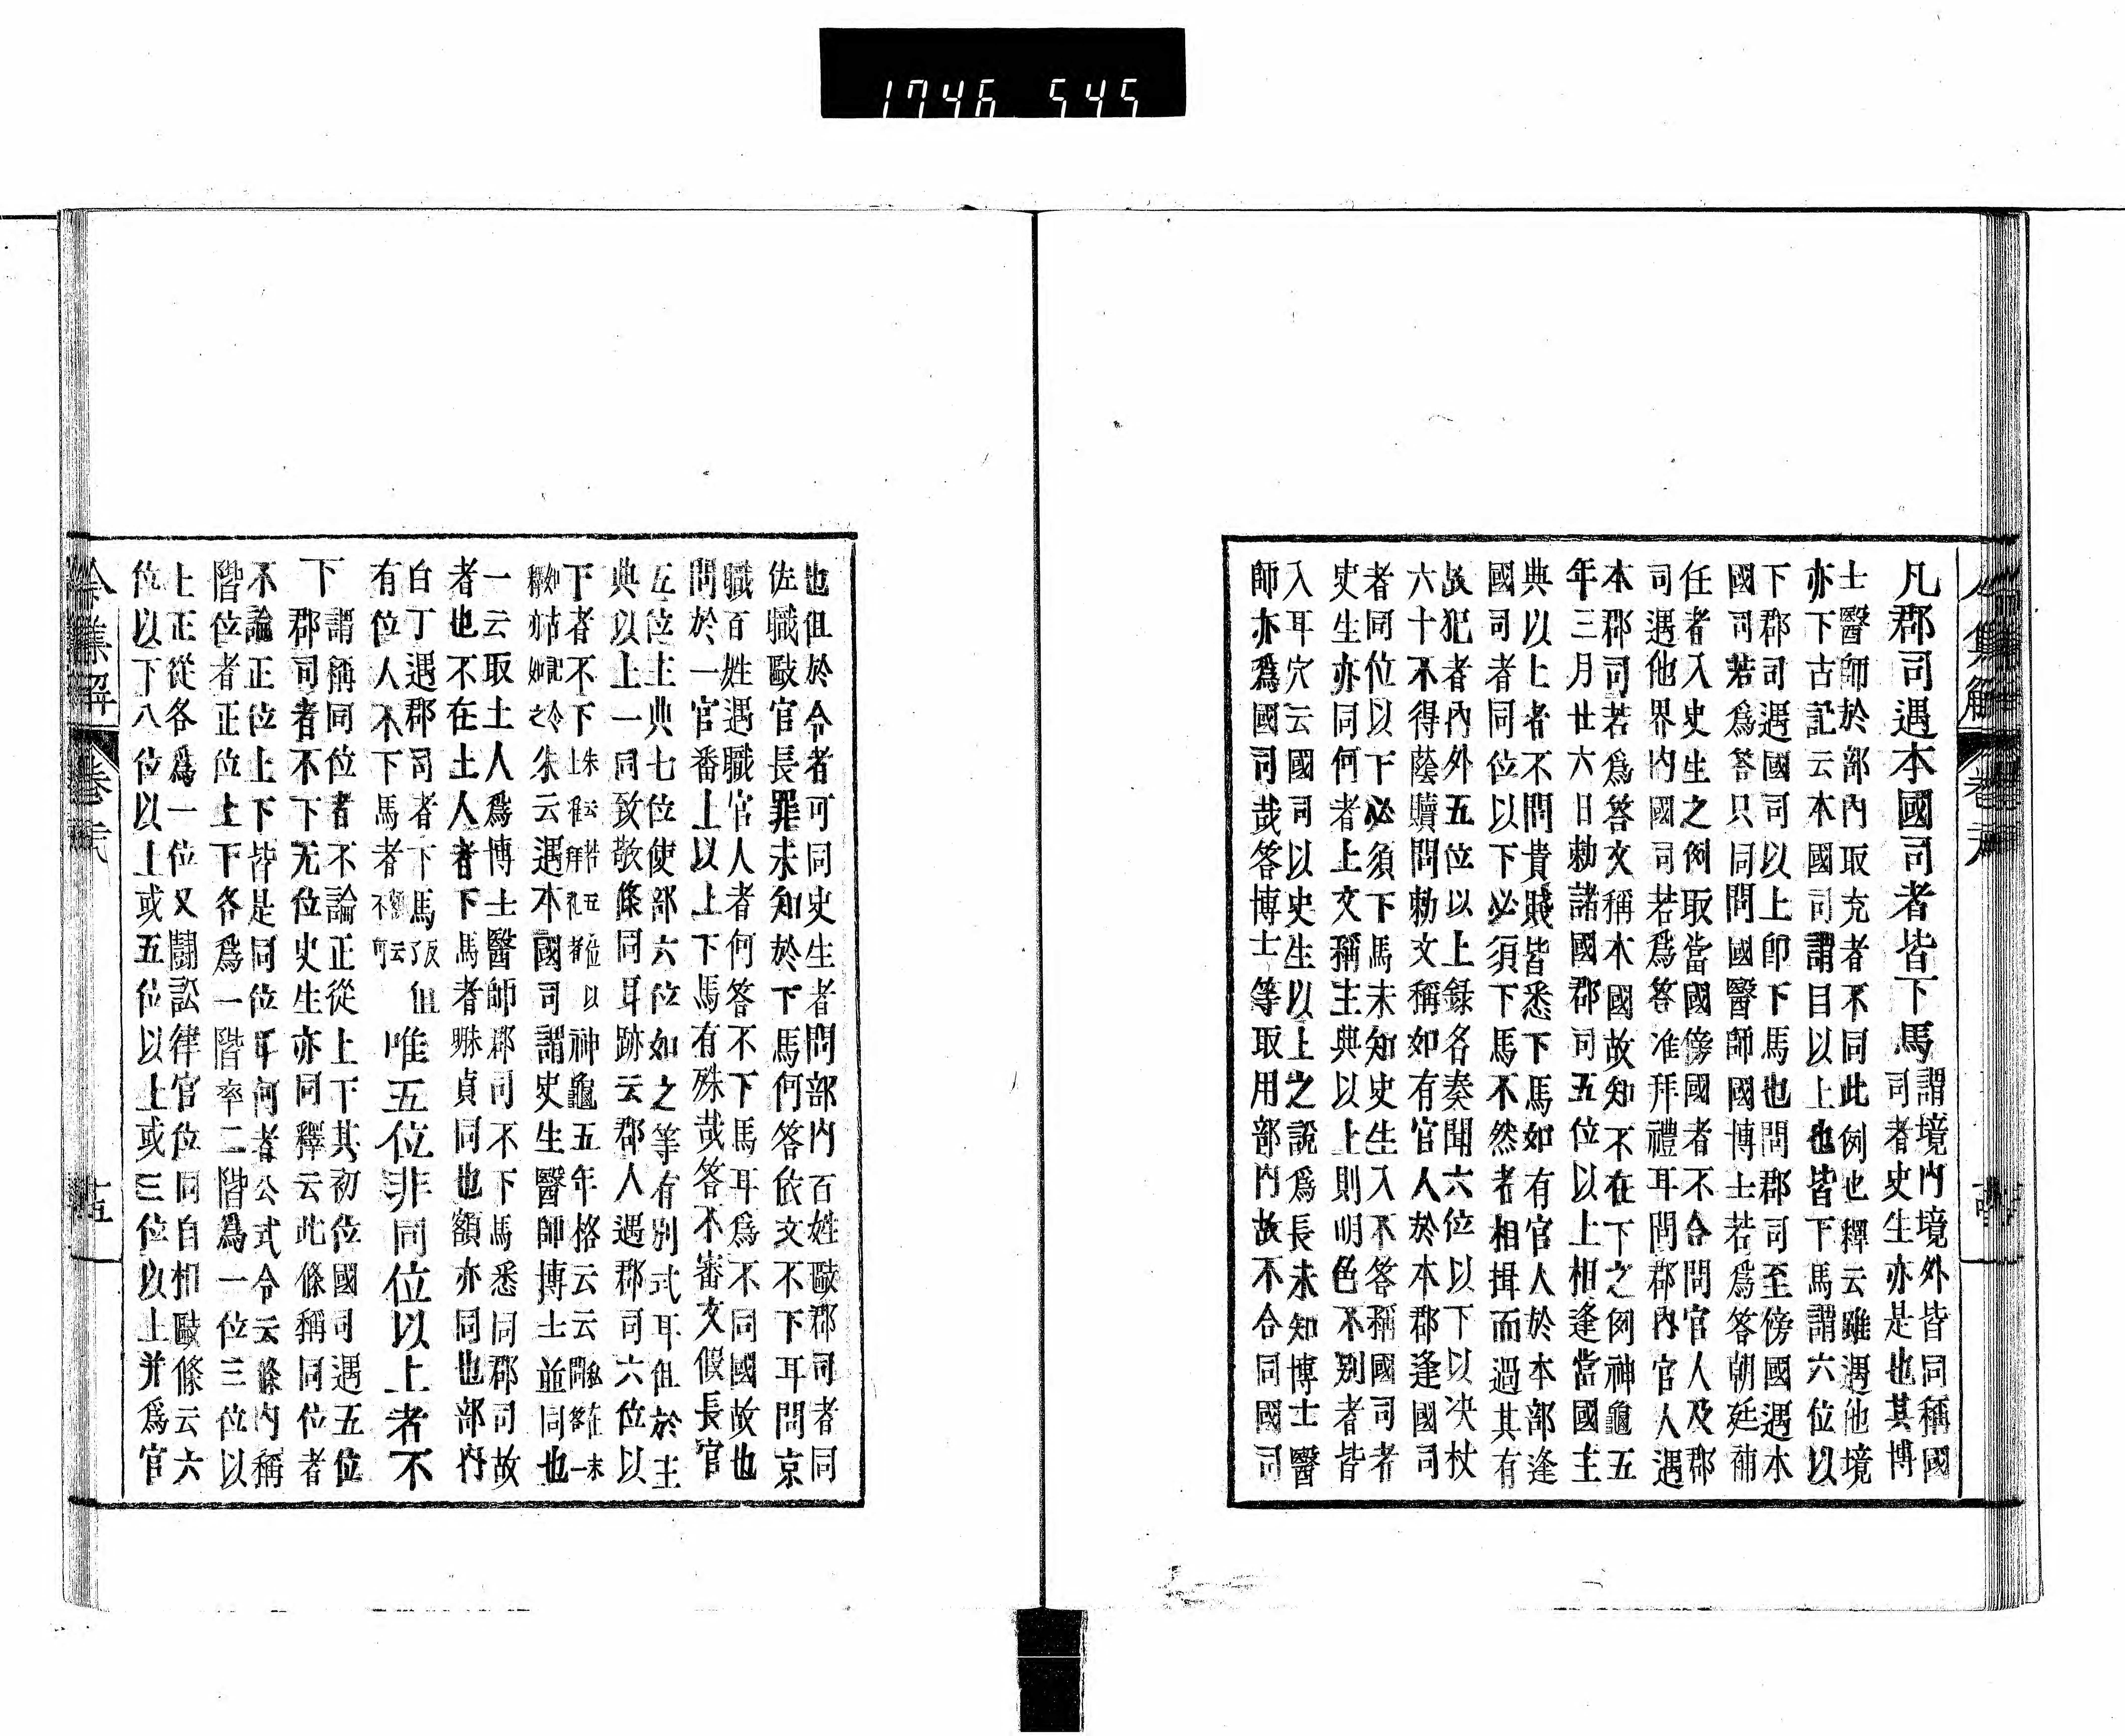 1746 545
凡郡司遇本國司者皆下馬
謂境內境外皆同稱國
司者史生亦是也其博
士醫師於部內取充者不同此例也釋云雖遇他境
亦下古記云本國司謂目以上也皆下馬謂六位以
下郡司遇國司以上卽下馬也問郡司至傍國遇本
國司若爲答只同問國醫師國博士若爲答朝廷補
任者入史生之例取當國傍國者不合問官人及郡
司遇他界內國司若爲答准拜禮耳問郡內官人遇
本郡司若爲答文稱本國故知不在下之例神龜五
年三月廿六日勅諸國郡司五位以上相逢當國主
典以上者不問貴賤皆悉下馬如有官人於本部逢
國司者同位以下必須下馬不然者相揖而過其有
故犯者內外五位以上錄名奏聞六位以下以决杖
六十不得蔭贖問勅文稱如有官人於本郡逢國司
者同位以下必須下馬未知史生入不答稱國司者
史生亦同何者上文稱主典以上則明色不別者皆
入耳穴云國司以史生以上之說爲長未知博士醫
師亦爲國司哉答博士等取用部內故不合同國司
也但於令者可同史生者問部內百姓毆郡司者同
佐職毆官長罪未知於下馬何答依文不下耳問京
職百姓遇職官人者何答不下馬耳爲不同國故也
問於一官番上以上下馬有殊哉答不審文假長官
五位主典七位使部六位如之等有別式耳但於主
典以上一同致敬條同耳跡云郡人遇郡司六位以
下者不下
神龜五年格云云
朱云遇本國司謂史生醫師博士並同也
一云取土人爲博士醫師郡司不下馬悉同郡司故
者也不在土人者下馬者𦙾貞同也額亦同也部內
白丁遇郡司者下馬
有位人不下馬者
唯五位非同位以上者不
下
謂稱同位者不論正從上下其初位國司遇五位
郡司者不下无位史生亦同釋云此條稱同位者
不論正位上下皆是同位耳何者公式令云條內稱
階位者正位上下各爲一階率二階爲一位三位以
上正從各爲一位又鬪訟律官位同自相毆條云六
位以下八位以上或五位以上或三位以上并爲官